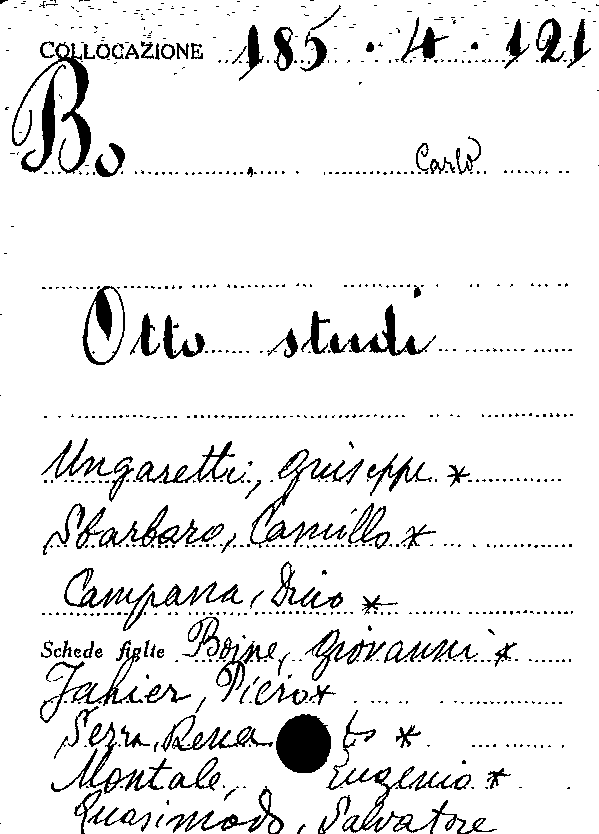 COLLOCAZIONE 185.4.121
Bo, Carlo
Otto studi
Ungaretti, Giuseppe *
Sbarbaro, Camillo *
Campana, Dino *
Schede figlie Boine, Giovanni *
Jahier, Piero *
Serra, Rena to *
Montale, Eugenio *
Quasimodo, Salvatore